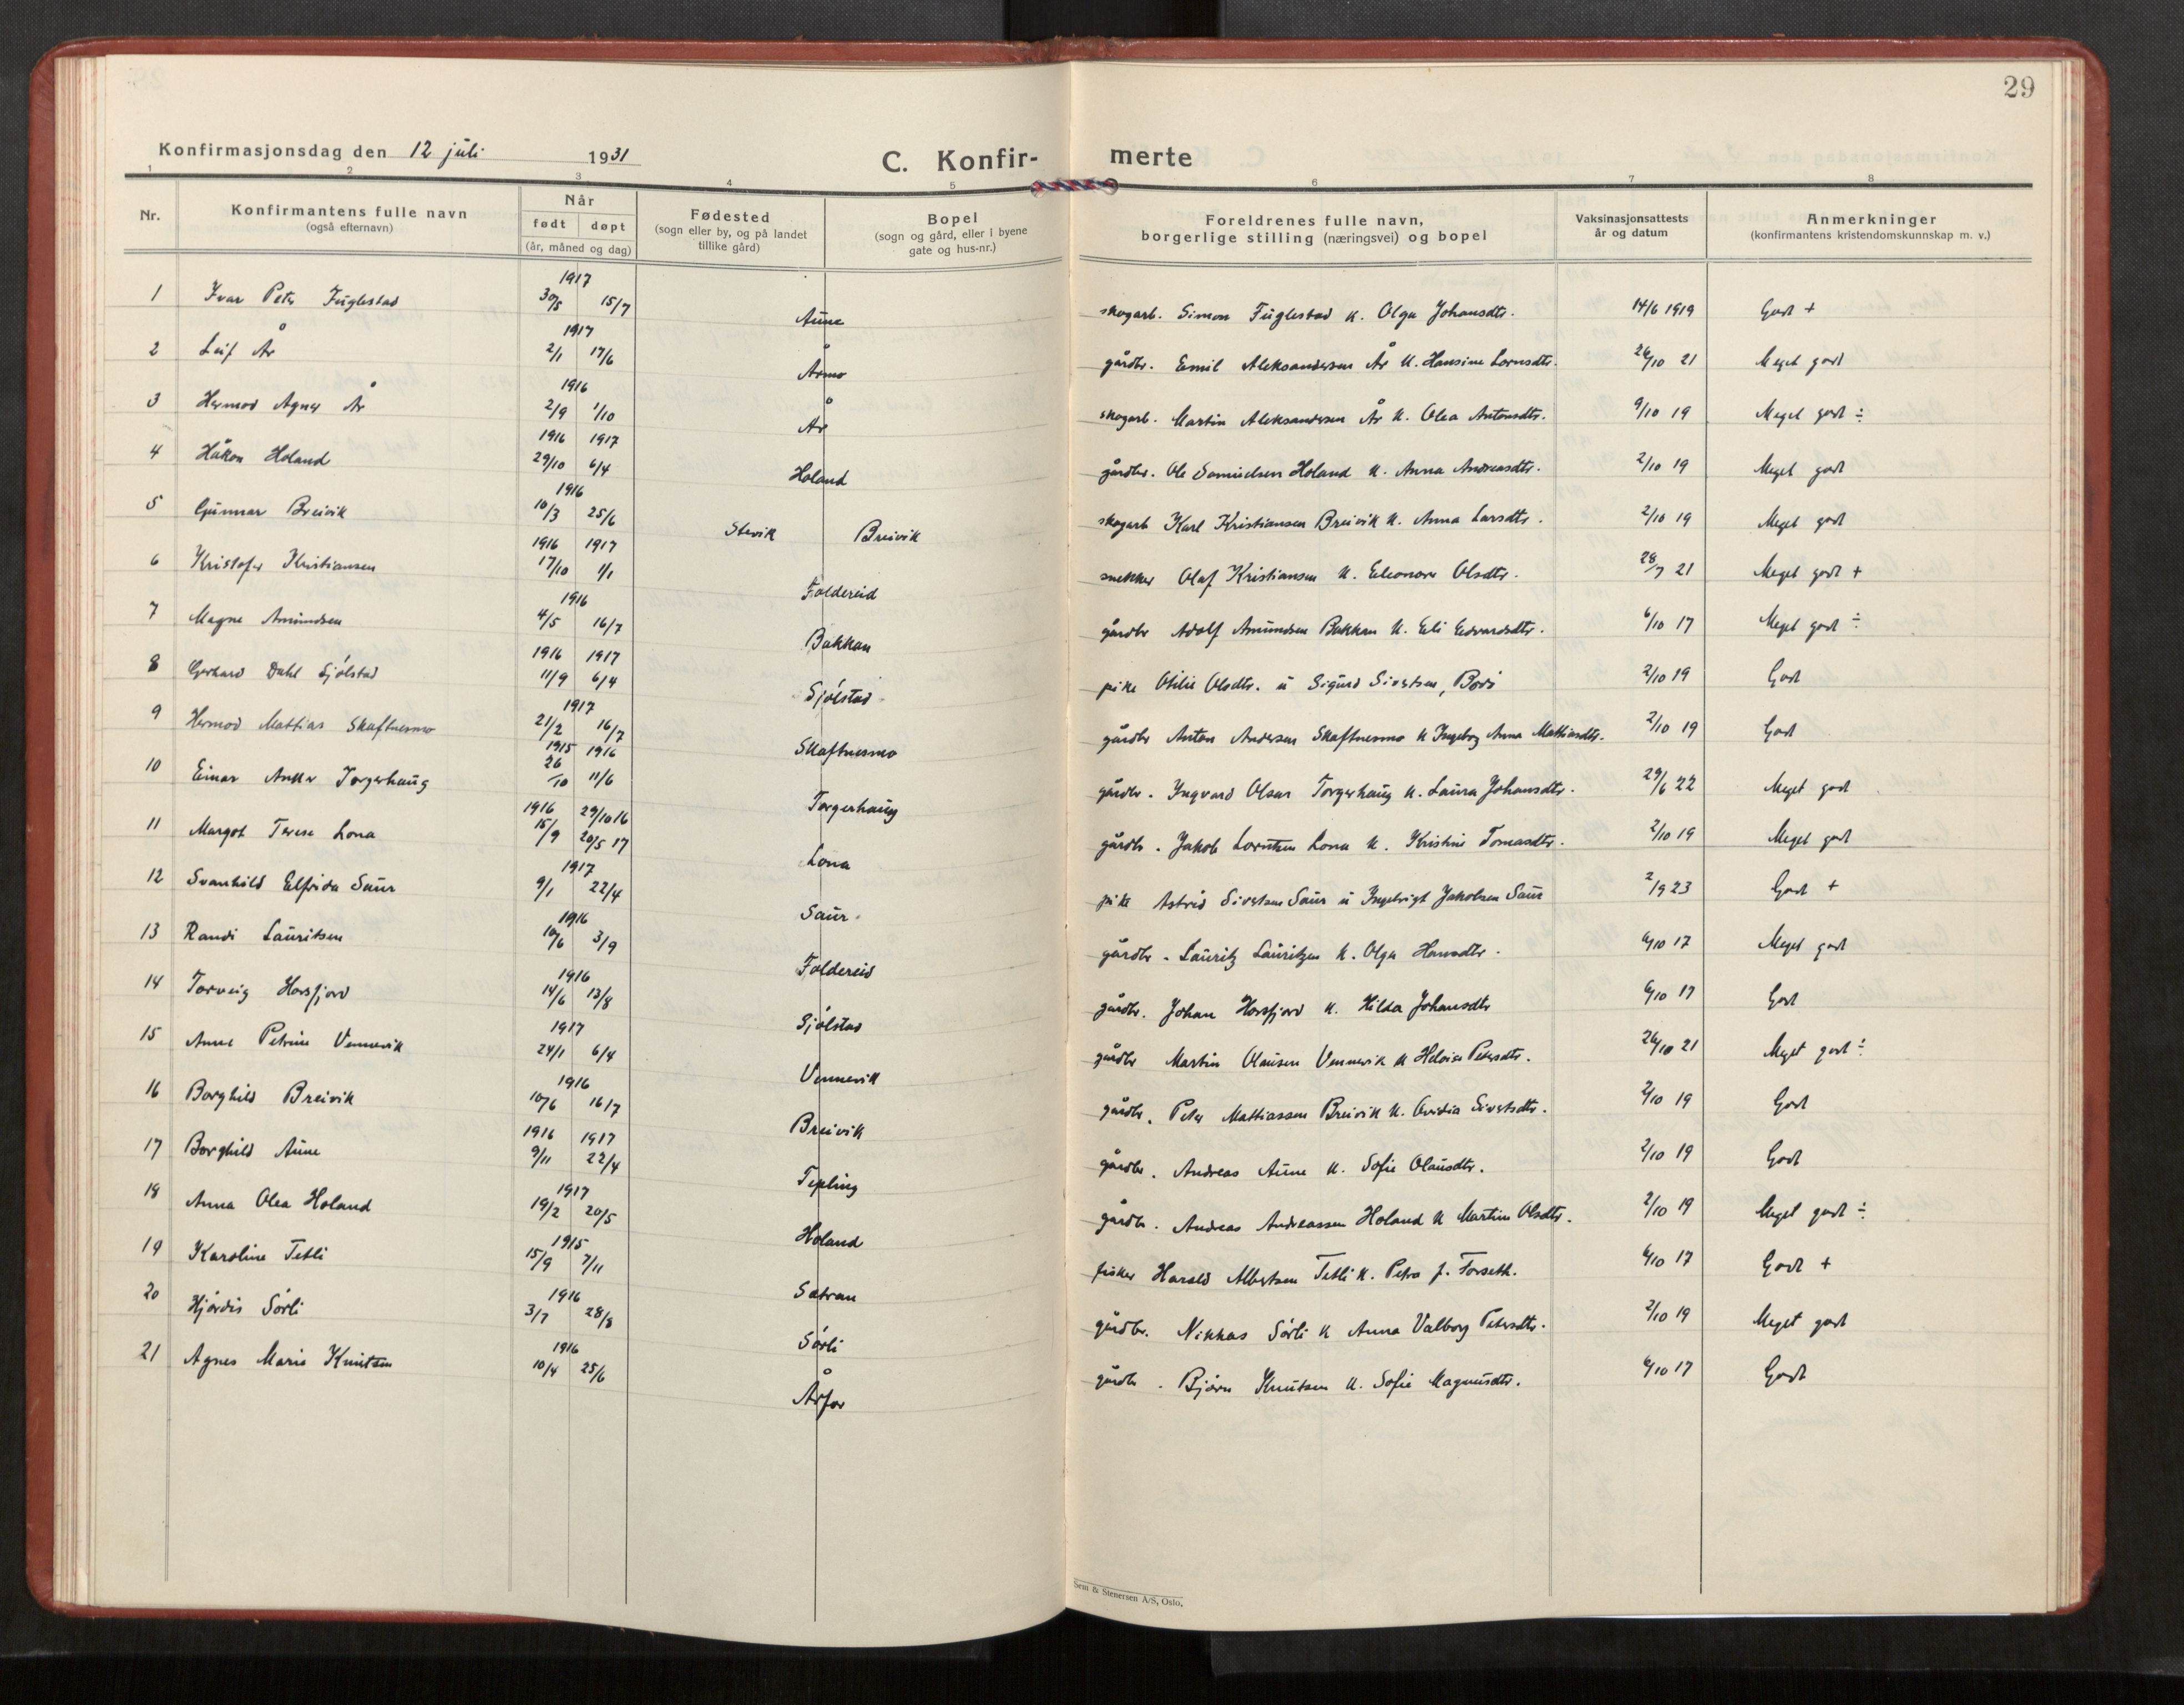 29
Konfirmasjonsdag den 12 juli 1931
C. Konfir- merte
1 2 3 4 5 6 7 8
Nr. Konfirmantens fulle navn (også efternavn) Når født døpt (år, måned og dag) Fødested (sogn eller by, og på landet tillike gård) Bopel (sogn og gård, eller i byene gate og hus-nr.) Foreldrenes fulle navn, borgerlige stilling (næringsvei) og bopel Vaksinasjonsattests år og datum Anmerkninger (konfirmantens kristendomskunnskap m. v.)
1 Ivar Peter Fuglestad 1917 30/5 15/7 Aune skogarb. Simon Fuglestad k. Olga Johansdtr. 14/6 1919 Godt +
2 Leif År 1917 2/1 17/6 Årmo gårdbr. Emil Aleksandersen År k. Hansine Lornsdtr. 26/10 21 Meget godt
3 Hermod Agner År 1916 2/9 1/10 År skogarb. Martin Aleksandersen År k. Olea Antonsdtr. 9/10 19 Meget godt ÷
4 Håkon Holand 1916 29/10 1917 6/4 Holand gårdbr. Ole Samuelsen Holand k. Anna Andreasdtr. 2/10 19 Meget godt
5 Gunnar Breivik 1916 10/3 25/6 Stevik Breivik skogarb Karl Kristiansen Breivik k. Anna Larsdtr. 2/10 19 Meget godt
6 Kristofer Kristiansen 1916 17/10 1917 1/1 Foldereid snekker Olaf Kristiansen k. Eleonore Olsdtr. 28/7 21 Meget godt +
7 Magne Amundsen 1916 4/5 16/7 Bakkan gårdbr Adolf Amundsen Bakkan k. Eli Edvardsdtr. 6/10 17 Meget godt ÷
8 Gerhard Dahl Sjölstad 1916 11/9 1917 6/4 Sjölstad pike Otilie Olsdtr. u Sigurd Sivertsen, Bodö 2/10 19 Godt
9 Hermod Mattias Skaftnesmo 1917 21/2 16/7 Skaftnesmo gårdbr Anton Andersen Skaftnesmo k Ingeborg Anna Mattiasdtr. 2/10 19 Godt
10 Einar Anker Torgerhaug 1915 26/10 1916 11/6 Torgerhaug gårdbr. Ingvard Olsen Torgerhaug k. Laura Johansdtr. 29/6 22 Meget godt
11 Margot Terese Lona 1916 15/9 29/10 16 20/5 17 Lona gårdbr. Jakob Lorntsen Lona k. Kristine Tomasdtr. 2/10 19 Meget godt
12 Svanhild Elfrida Saur 1917 9/1 22/4 Saur pike Astrid Sivertsen Saur u Ingebrigt Jakobsen Saur 2/9 23 Godt +
13 Randi Lauritsen 1916 10/6 3/9 Foldereid gårdbr. Lauritz Lauritzen k. Olga Hansdtr. 6/10 17 Meget godt
14 Torveig Horsfjord 1916 14/6 13/8 Sjölstad gårdbr. Johan Horsfjord k. Hilda Johansdtr 6/10 17 Godt
15 Anne Petrine Vennevik 1917 24/1 6/4 Vennevik gårdbr Martin Olausen Vennevik k Heloise Petersdtr. 26/10 21 Meget godt ÷
16 Borghild Breivik 1916 10/6 16/7 Breivik gårdbr. Peter Mattiassen Breivik k. Ovidia Sivertsdtr. 2/10 19 Godt
17 Borghild Aune 1916 9/11 1917 22/4 Tepling gårdbr. Andreas Aune k. Sofie Olausdtr. 2/10 19 Godt
18 Anna Olea Holand 1917 19/2 20/5 Holand gårdbr. Andreas Andreassen Holand k Martine Olsdtr. 2/10 19 Meget godt ÷
19 Karoline Tetli 1915 15/9 7/11 Satran fisker Harald Albertsen Tetli k. Petra f. Forseth. 6/10 17 Godt +
20 Hjördis Sörli 1916 3/7 28/8 Sörli gårdbr. Nikkas Sörli k Anna Valborg Petersdtr. 2/10 19 Meget godt
21 Agnes Marie Knutsen 1916 10/4 25/6 Årfor gårdbr. Björn Knutsen k. Sofie Magnusdtr. 6/10 17 Godt
Sem & Stenersen A/S, Oslo.